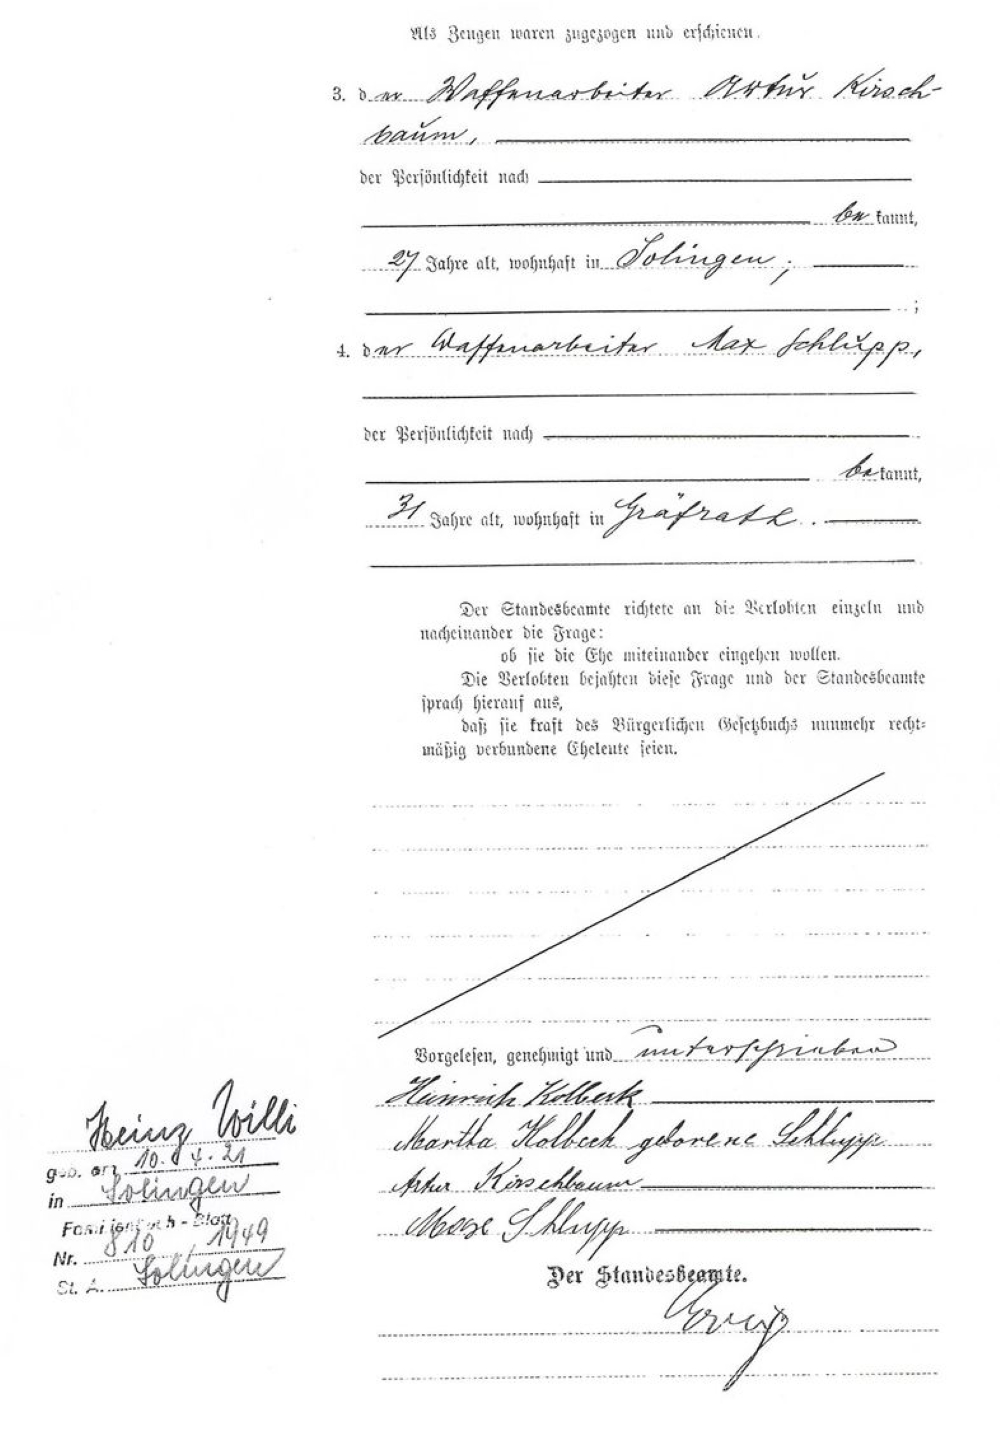 Als Zeugen waren zugezogen und erschienen.
3. der Waffenarbeiter Artur Kirsch-
baum,
der Persönlichkeit nach
bekannt,
27 Jahre alt, wohnhaft in Solingen;
;
4. der Waffenarbeiter Max Schlupp,
der Persönlichkeit nach
bekannt,
31 Jahre alt, wohnhaft in Gräfrath.
Der Standesbeamte richtete an die Verlobten einzeln und
nacheinander die Frage:
ob sie die Ehe miteinander eingehen wollen.
Die Verlobten bejahten diese Frage und der Standesbeamte
sprach hierauf aus,
daß sie kraft des Bürgerlichen Gesetzbuchs nunmehr recht-
mäßig verbundene Eheleute seien.
Vorgelesen, genehmigt und unterschrieben
Heinrich Kolbeck
Martha Kolbeck geborene Schlupp
Artur Kirschbaum
Max Schlupp
Der Standesbeamte.
Heinz Willi
geb. am 10.4.21
in Solingen
Familienbuch-Blatt
Nr. 810, 1949
St. A. Solingen